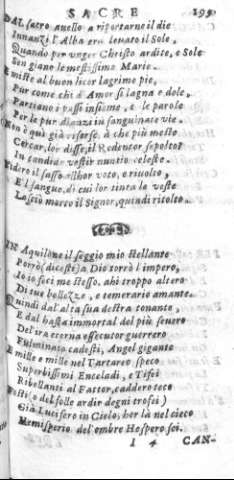 SACRE 199
DAL sacro auello a riportarne il die
Innanzi l'Alba era leuato il Sole,
Quando per unger Christo ardite, e Sole
Sen giano le mestissime Marie.
E miste al buon licor lagrime pie,
Pur come chi d'Amor si lagna e dole,
Partiano i passi insieme, e le parole
Per le pur dianzi insanguinate vie.
Non è quì già risorse, à che più mesto
Cercar, lor disse, il Redentor sepolto?
In candido vestir nuntio celeste.
Videro il sasso allhor voto, e riuolto,
E l sangue, di cui lor tinta la veste
Lasciò morto il Signor, quindi ritolto.
IN Aquilone il seggio mio stellante
Porrò (diceste) a Dio torrò l'impero,
Io io feci me stesso. ahi troppo altero
Di tue bellezze, e temerario amante.
Quindi dal alta sua destra tonante,
E dal hasta immortal del più seuero
Del ira eterna essecutor guerrero
Fulminato cadesti, Angel gigante
E mille e mille nel Tartareo speco
Superbissimi Enceladi, e Tifei
Ribellanti al Fattor, cadder teco
(del folle ardir degni trofei)
Già Lucifero in Cielo, hor là nel cieco
Hemisperio del'ombre Hespero sei.
I 4 CAN-